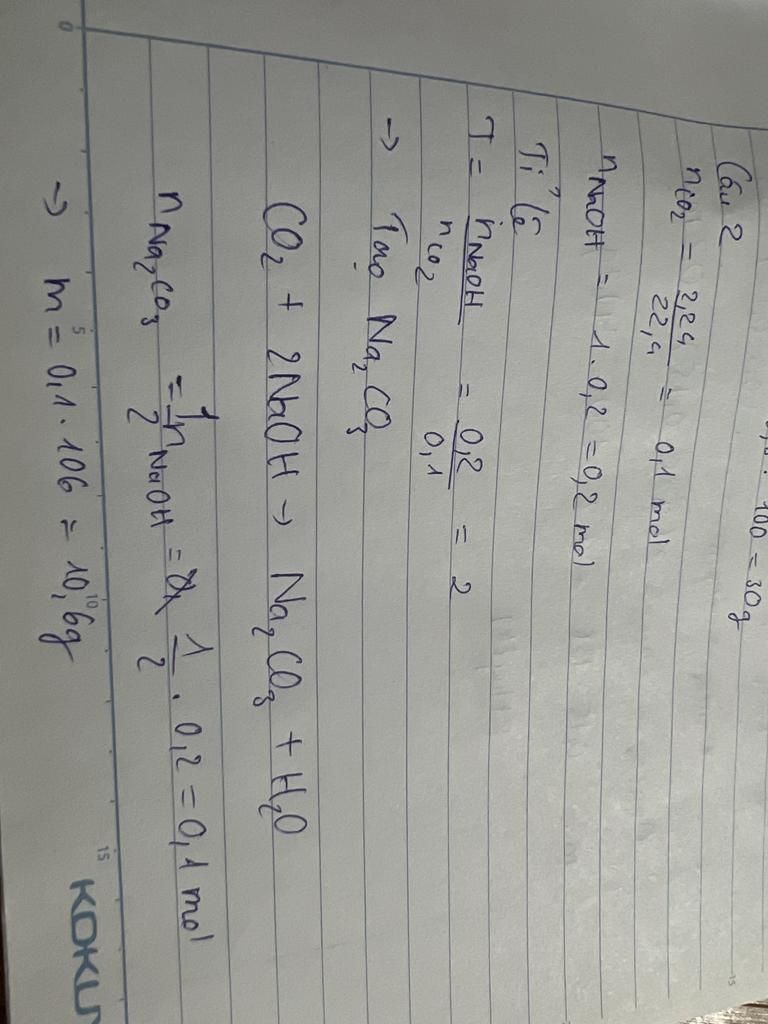 100 = 30g
Câu 2
nCO₂ = 2,24/22,4 = 0,1 mol
nNaOH = 1 . 0,2 = 0,2 mol
Tỉ lệ
T = nNaOH/nCO₂ = 0,2/0,1 = 2
→ Tạo Na₂CO₃
CO₂ + 2NaOH → Na₂CO₃ + H₂O
nNa₂CO₃ = 1/2 nNaOH = 1/2 . 0,2 = 0,1 mol
→ m = 0,1 . 106 = 10,6g
0 5 10 15
15